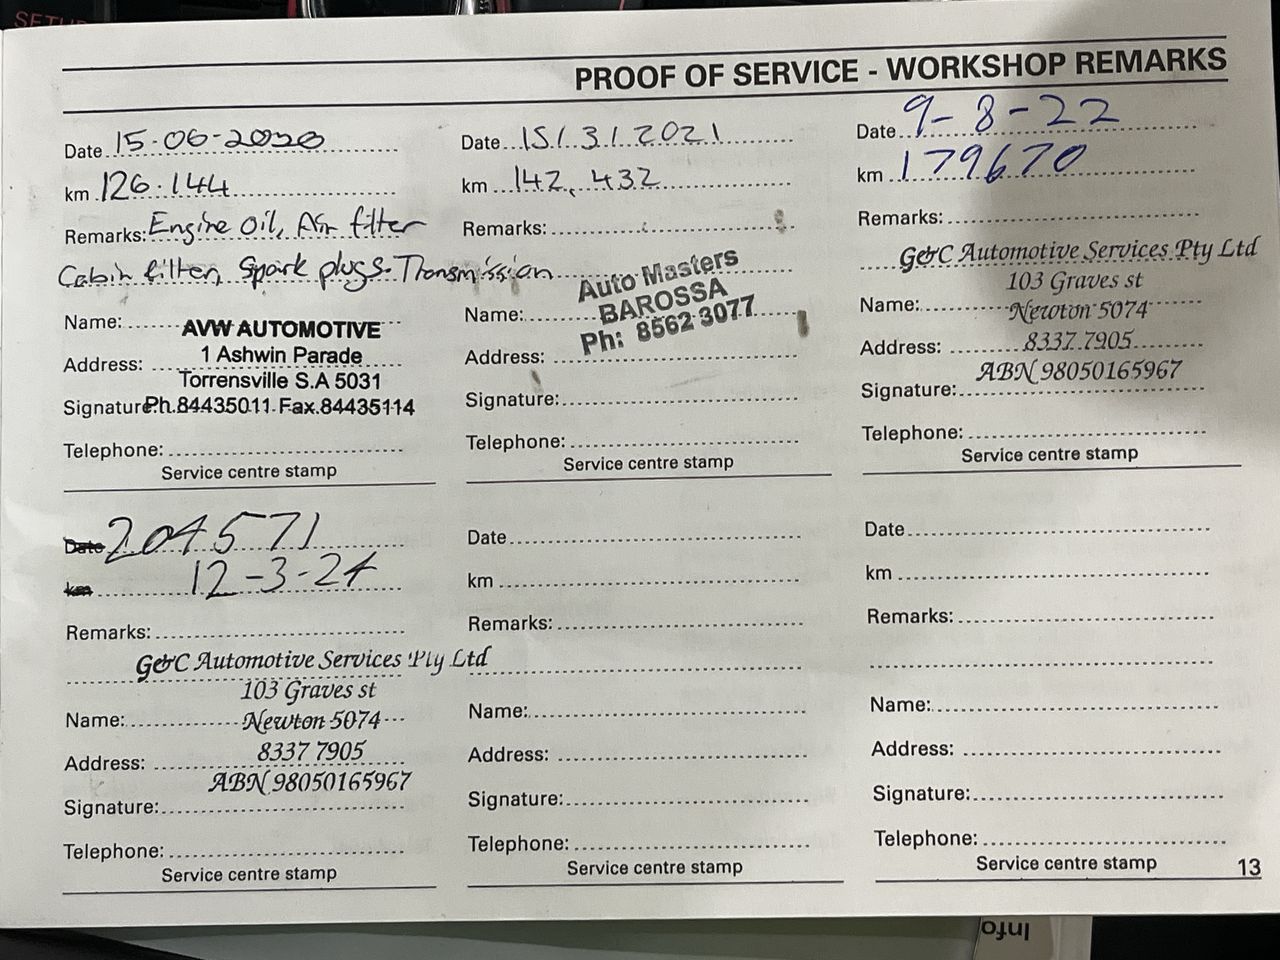 SETU
PROOF OF SERVICE - WORKSHOP REMARKS
Date 15-06-2020
km 126.144
Remarks: Engine Oil, Air filter
Cabin filter, Spark plugs. Transmission
Name:
AVW AUTOMOTIVE
Address:
1 Ashwin Parade
Torrensville S.A 5031
Signature
Ph.84435011 Fax.84435114
Telephone:
Service centre stamp
Date 15/3/2021
km 142,432
Remarks:
Auto Masters
BAROSSA
Ph: 8562 3077
Name:
Address:
Signature:
Telephone:
Service centre stamp
Date 9-8-22
km 179670
Remarks:
G&C Automotive Services Pty Ltd
103 Graves st
Name:
Newton 5074
Address:
8337 7905
ABN 98050165967
Signature:
Telephone:
Service centre stamp
Date 204571
km 12-3-24
Remarks:
G&C Automotive Services Pty Ltd
103 Graves st
Name:
Newton 5074
Address:
8337 7905
ABN 98050165967
Signature:
Telephone:
Service centre stamp
Date
km
Remarks:
Name:
Address:
Signature:
Telephone:
Service centre stamp
Date
km
Remarks:
Name:
Address:
Signature:
Telephone:
Service centre stamp
13
Info